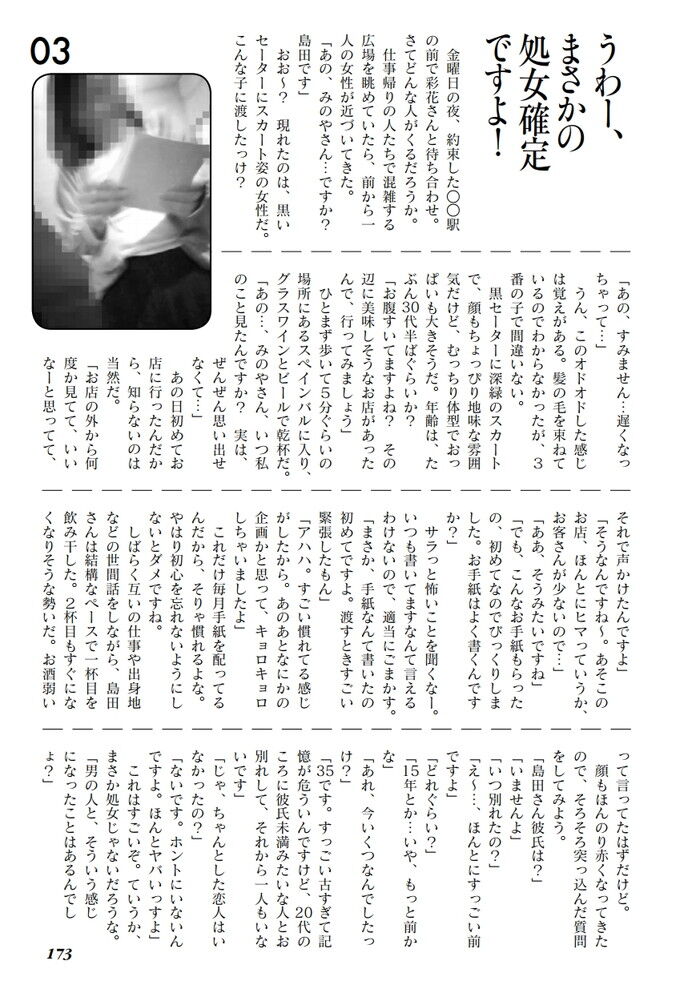 うわー、
まさかの
処女確定
ですよ！
03
金曜日の夜、約束した〇〇駅
の前で彩花さんと待ち合わせ。
さてどんな人がくるだろうか。
仕事帰りの人たちで混雑する
広場を眺めていたら、前から一
人の女性が近づいてきた。
「あの、みのやさん…ですか？
島田です」
おお〜？　現れたのは、黒い
セーターにスカート姿の女性だ。
こんな子に渡したっけ？
「あの、すみません…遅くなっ
ちゃって…」
うん、このオドオドした感じ
は覚えがある。髪の毛を束ねて
いるのでわからなかったが、３
番の子で間違いない。
黒セーターに深緑のスカート
で、顔もちょっぴり地味な雰囲
気だけど、むっちり体型でおっ
ぱいも大きそうだ。年齢は、た
ぶん30代半ばぐらいか？
「お腹すいてますよね？　その
辺に美味しそうなお店があった
んで、行ってみましょう」
ひとまず歩いて５分ぐらいの
場所にあるスペインバルに入り、
グラスワインとビールで乾杯だ。
「あの…、みのやさん、いつ私
のこと見たんですか？　実は、
ぜんぜん思い出せ
なくて…」
あの日初めてお
店に行ったんだか
ら、知らないのは
当然だ。
「お店の外から何
度か見てて、いい
なーと思ってて、
それで声かけたんですよ」
「そうなんですね〜。あそこの
お店、ほんとにヒマっていうか、
お客さんが少ないので…」
「ああ、そうみたいですね」
「でも、こんなお手紙もらった
の、初めてなのでびっくりしま
した。お手紙はよく書くんです
か？」
サラっと怖いことを聞くなー。
いつも書いてますなんて言える
わけないので、適当にごまかす。
「まさか、手紙なんて書いたの
初めてですよ。渡すときすごい
緊張したもん」
「アハハ。すごい慣れてる感じ
がしたから。あのあとなにかの
企画かと思って、キョロキョロ
しちゃいましたよ」
これだけ毎月手紙を配ってる
んだから、そりゃ慣れるよな。
やはり初心を忘れないようにし
ないとダメですね。
しばらく互いの仕事や出身地
などの世間話をしながら、島田
さんは結構なペースで一杯目を
飲み干した。２杯目もすぐにな
くなりそうな勢いだ。お酒弱い
って言ってたはずだけど。
顔もほんのり赤くなってきた
ので、そろそろ突っ込んだ質問
をしてみよう。
「島田さん彼氏は？」
「いませんよ」
「いつ別れたの？」
「え〜…、ほんとにすっごい前
ですよ」
「どれぐらい？」
「15年とか…いや、もっと前か
な」
「あれ、今いくつなんでしたっ
け？」
「35です。すっごい古すぎて記
憶が危ういんですけど、20代の
ころに彼氏未満みたいな人とお
別れして、それから一人もいな
いです」
「じゃ、ちゃんとした恋人はい
なかったの？」
「ないです。ホントにいないん
ですよ。ほんとヤバいっすよ」
これはすごいぞ。ていうか、
まさか処女じゃないだろうな。
「男の人と、そういう感じ
になったことはあるんでし
ょ？」
173